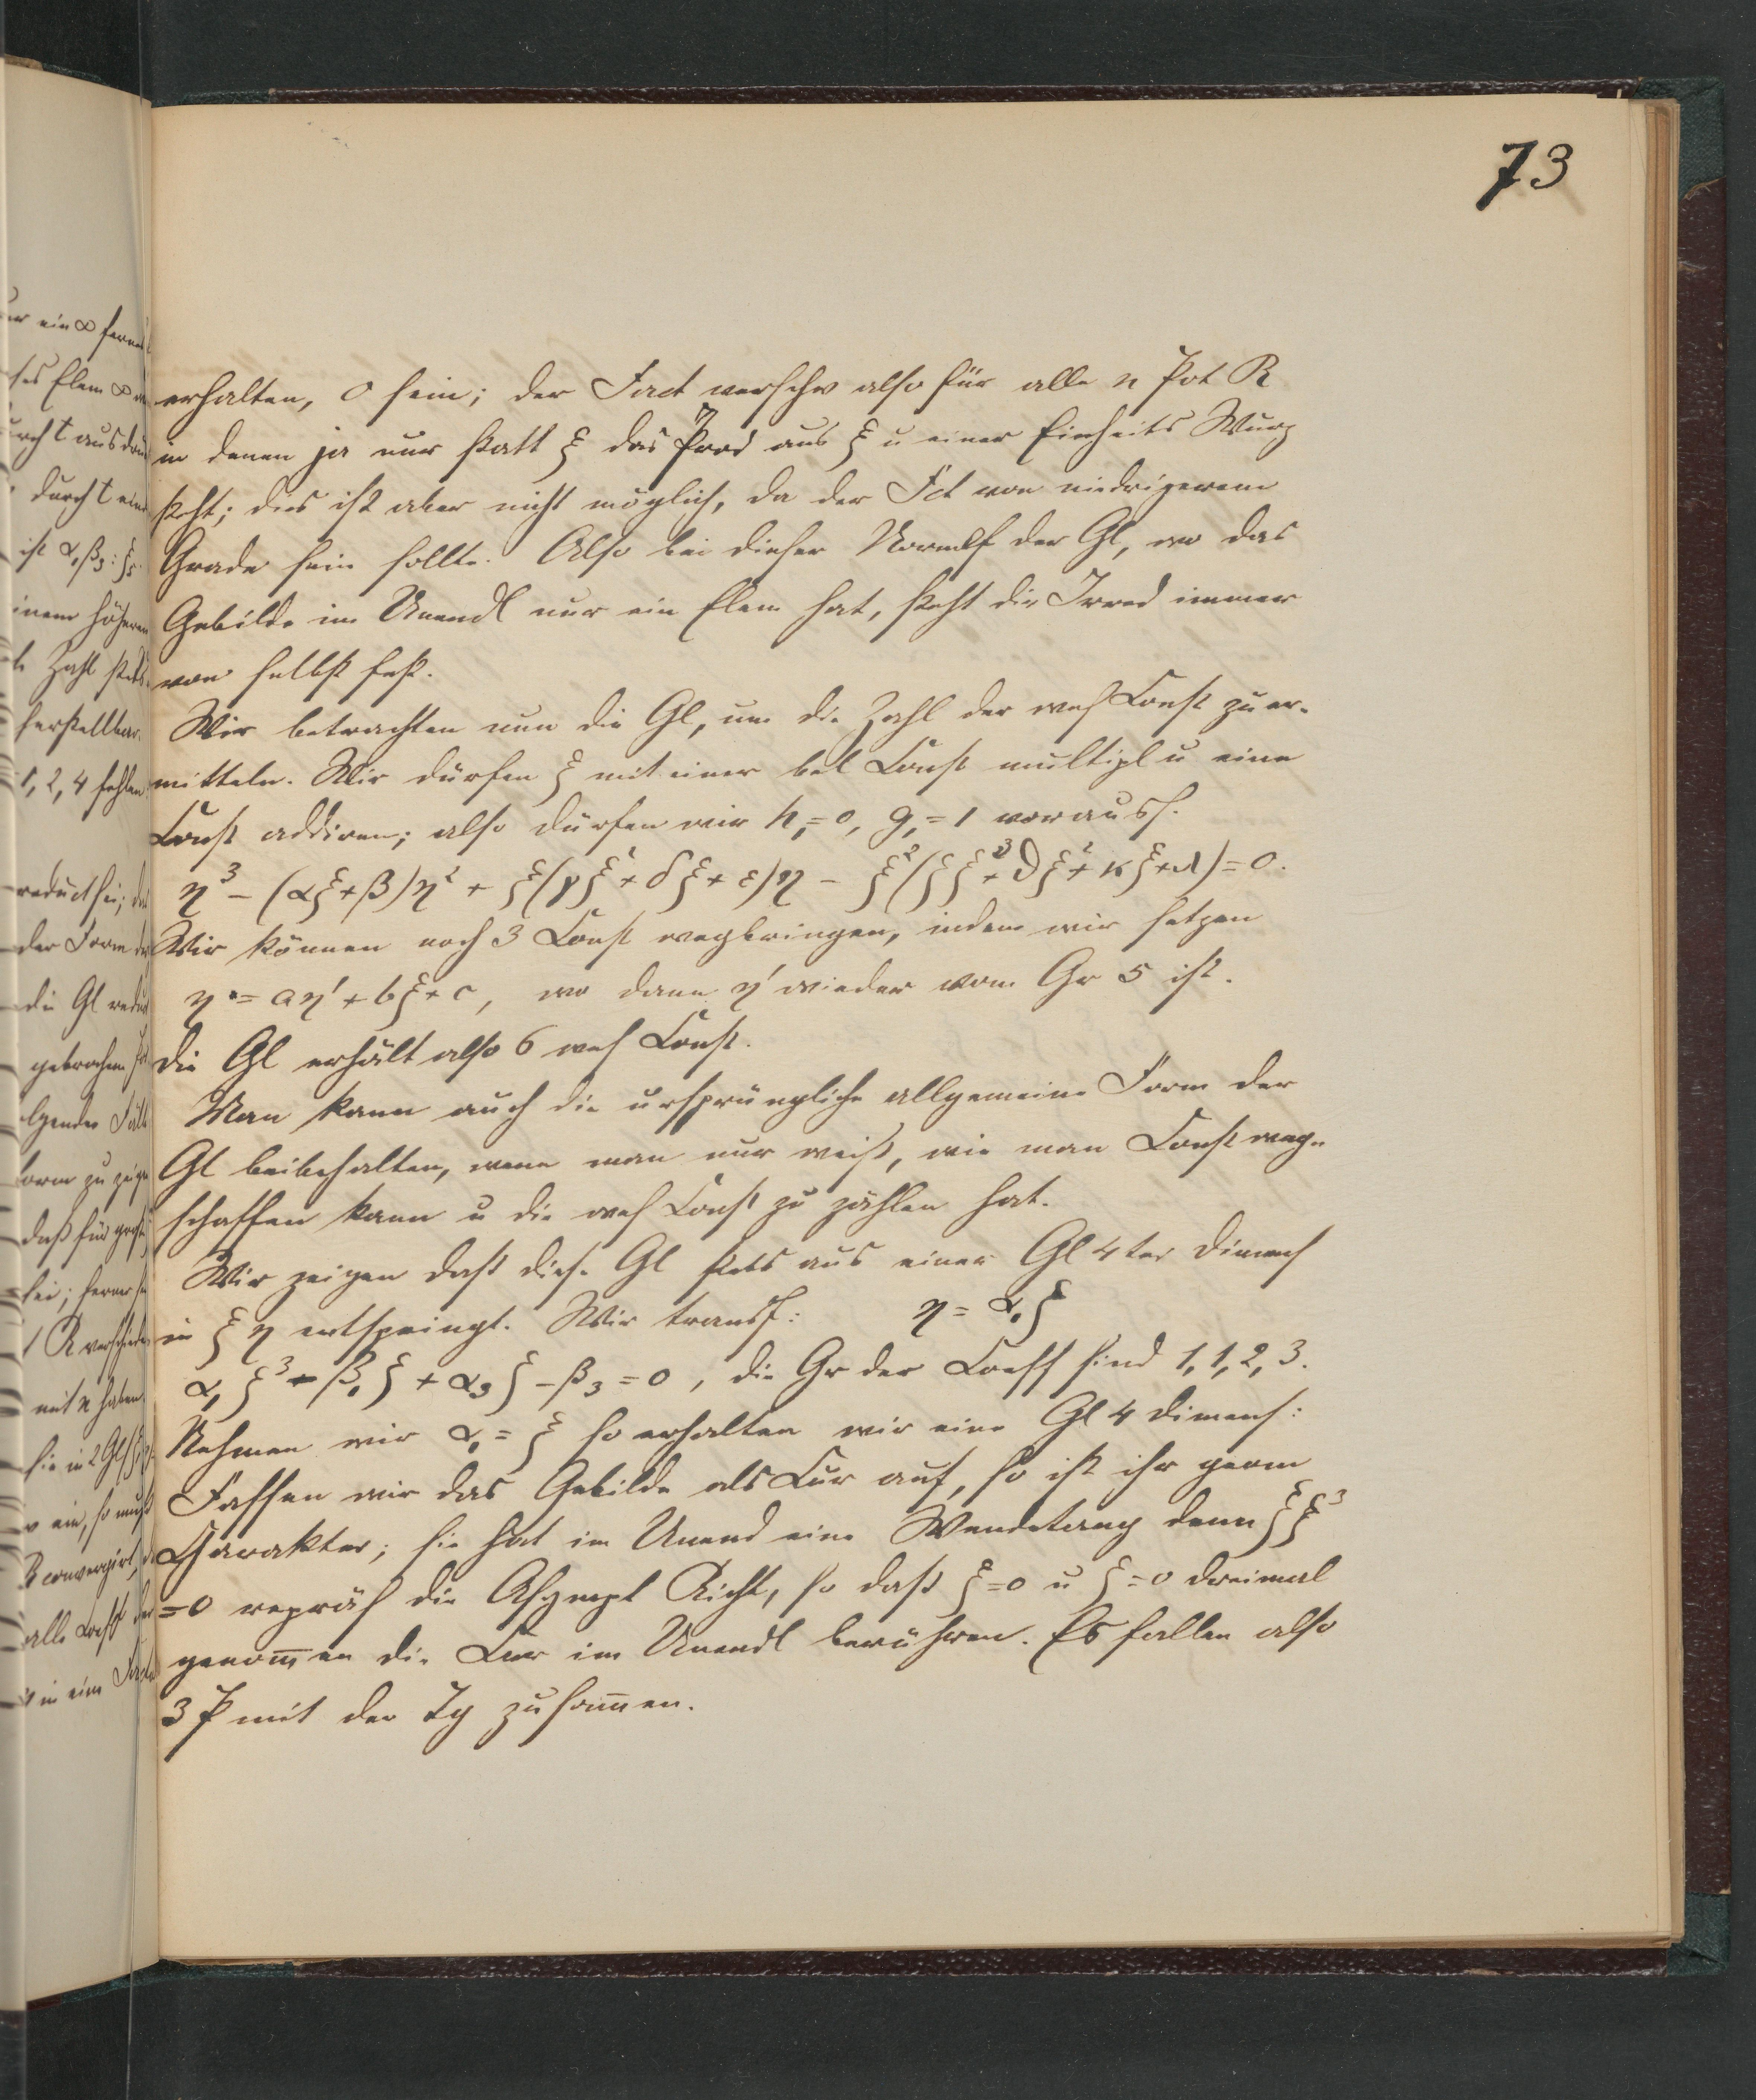 73
erhalten, 0 sein; der Fact verschw also für alle n Pot R
in denen ja nur statt ξ das Prod aus ξ u einer Einheits Wurz
steht; dies ist aber nicht möglich, da der Fct von niedrigerem
Grade sein sollte. Also bei dieser Normalf der Gl, wo das
Gebilde im Unendl nur ein Elem hat, steht die Irred immer
von selbst fest.
Wir betrachten nun die Gl, um die Zahl der wes Const zu er-
mitteln. Wir dürfen ξ mit einer bel Const multipl u eine
Const addiren; also dürfen wir h,=0, g,=1 vorauss.
η³ - (αξ+β)η² + ξ(γξ²+δξ+ε)η - ξ²(ζξ³+ϑξ²+κξ+λ)=0.
Wir können noch 3 Const wegbringen, indem wir setzen
η = aη'+bξ+c, wo dann η' wieder vom Gr 5 ist.
Die Gl erhält also 6 wes Const.
Man kann auch die ursprüngliche allgemeine Form der
Gl beibehalten, wenn man nur weiß, wie man Const weg-
schaffen kann u die wes Const zu zählen hat.
Wir zeigen daß diese Gl stets aus einer Gl 4ter Dimens
in ξ η entspringt. Wir transf: η = α₁ζ
α₁ζ³ - β₁ζ + α₂ζ - β₃ = 0, die Gr der Coeff sind 1, 1, 2, 3.
Nehmen wir α₁ = ξ so erhalten wir eine Gl 4 Dimens:
Fassen wir das Gebilde als Cur auf, so ist ihr geom
Charakter; sie hat im Unend eine Wendetang denn ζξ³
=0 repräs die Asympt Richt, so daß ξ=0 u ζ=0 dreimal
genom̅en die Cur im Unendl berühren. Es fallen also
3 P mit der Tg zusam̅en.